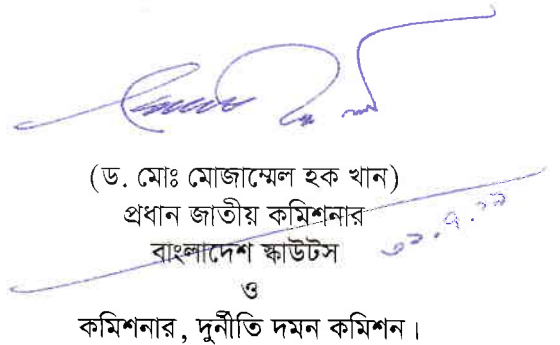 (ড. মোঃ মোজাম্মেল হক খান)
প্রধান জাতীয় কমিশনার
বাংলাদেশ স্কাউটস
ও
কমিশনার, দুর্নীতি দমন কমিশন।